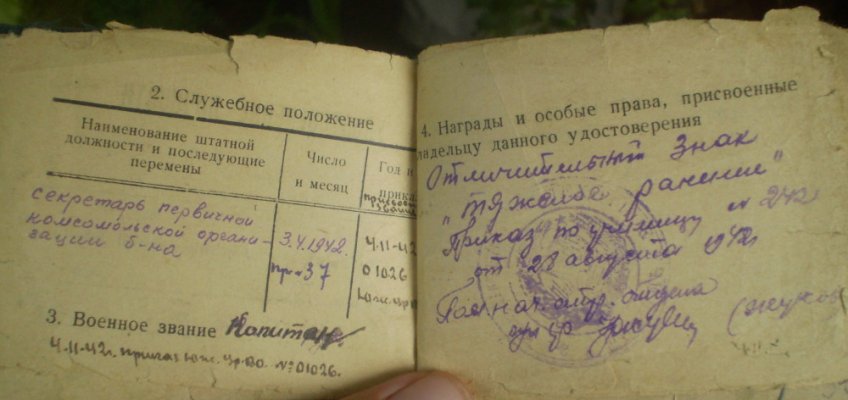 2. Служебное положение
Наименование штатной должности и последующие перемены
Число и месяц
Год и
прика
присвоен
звания
секретарь первичной
комсомольской органи-
зации б-на
3.4.1942.
пр. № 37
4-11-42
01026
3. Военное звание Капитан.
4-11-42г. приказ Юж. Ур. ВО. № 01026.
4. Награды и особые права, присвоенные
владельцу данного удостоверения
Отличительный знак
"тяжелое ранение"
Приказ по училищу № 242
от 28 августа 1942г
(Жуков